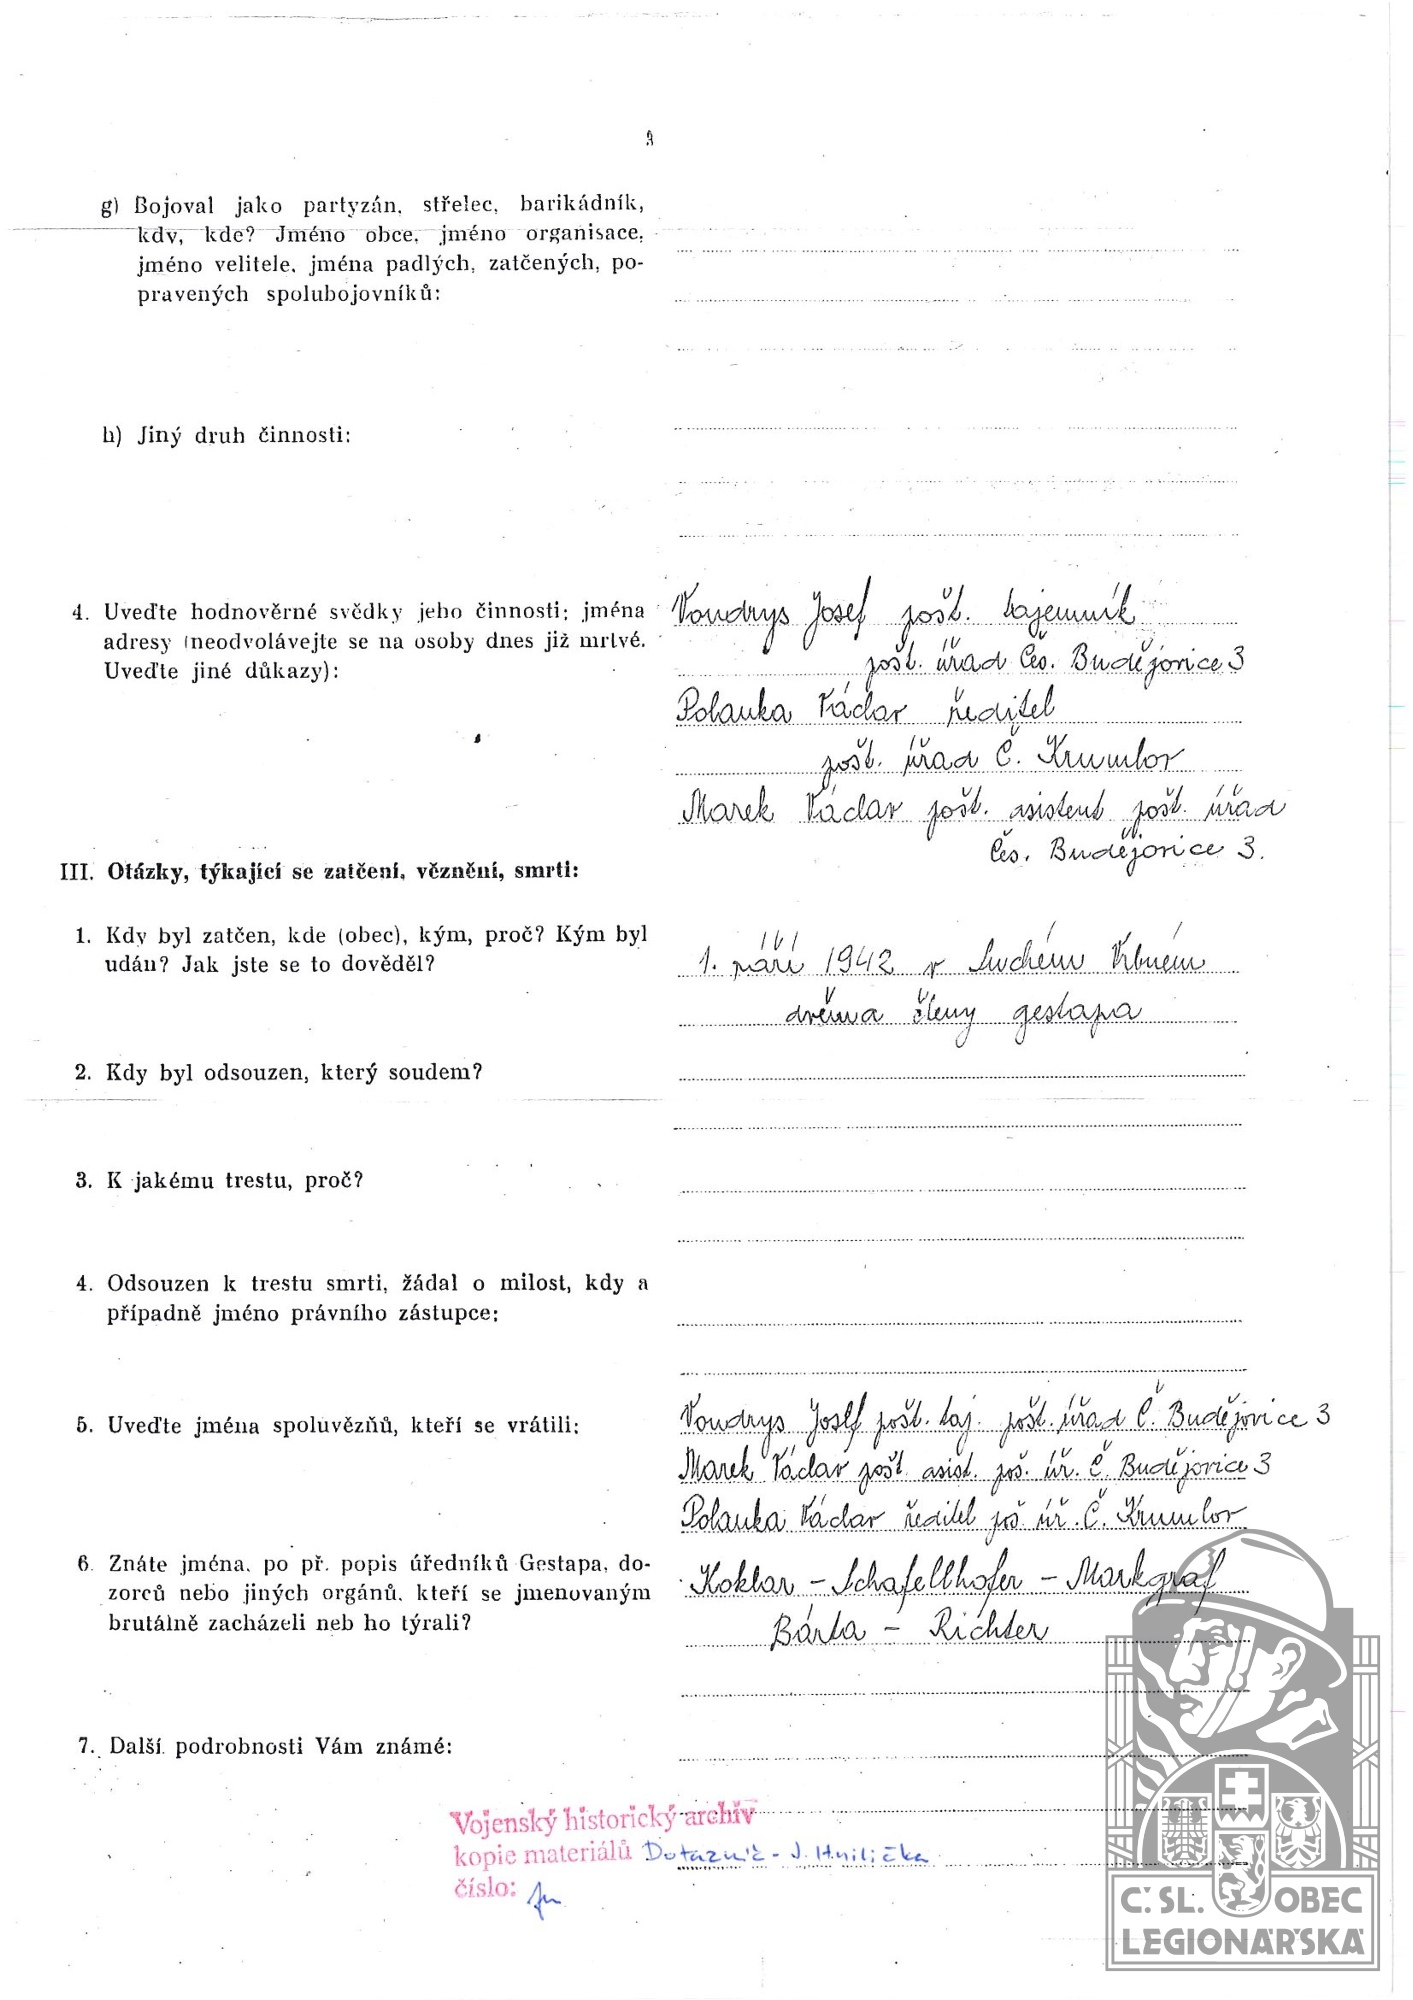 3
g) Bojoval jako partyzán, střelec, barikádník,
kdy, kde? Jméno obce, jméno organisace,
jméno velitele, jména padlých, zatčených, po-
pravených spolubojovníků:
h) Jiný druh činnosti:
4. Uveďte hodnověrné svědky jeho činnosti; jména
adresy (neodvolávejte se na osoby dnes již mrtvé.
Uveďte jiné důkazy):
Vondrys Josef pošt. tajemník
pošt. úřad Čes. Budějovice 3
Polauka Václav ředitel
pošt. úřad Č. Krumlov
Marek Václav pošt. asistent pošt. úřad
Čes. Budějovice 3.
III. Otázky, týkající se zatčení, věznění, smrti:
1. Kdy byl zatčen, kde (obec), kým, proč? Kým byl
udán? Jak jste se to dověděl?
1. září 1942 v Suchém Vrbném
dvěma členy gestapa
2. Kdy byl odsouzen, který soudem?
3. K jakému trestu, proč?
4. Odsouzen k trestu smrti, žádal o milost, kdy a
případně jméno právního zástupce:
5. Uveďte jména spoluvězňů, kteří se vrátili:
Vondrys Josef pošt. taj. pošt. úřad Č. Budějovice 3
Marek Václav pošt. asist. poš. úř. Č. Budějovice 3
Polauka Václav ředitel poš. úř. Č. Krumlov
6. Znáte jména, po př. popis úředníků Gestapa, do-
zorců nebo jiných orgánů, kteří se jmenovaným
brutálně zacházeli neb ho týrali?
Koklar – Schafellhofer – Markgraf
Bárta – Richter
7. Další podrobnosti Vám známé:
Vojenský historický archiv
kopie materiálů Dotazník - J. Hnilička
číslo:
Č. SL. OBEC
LEGIONÁŘSKÁ